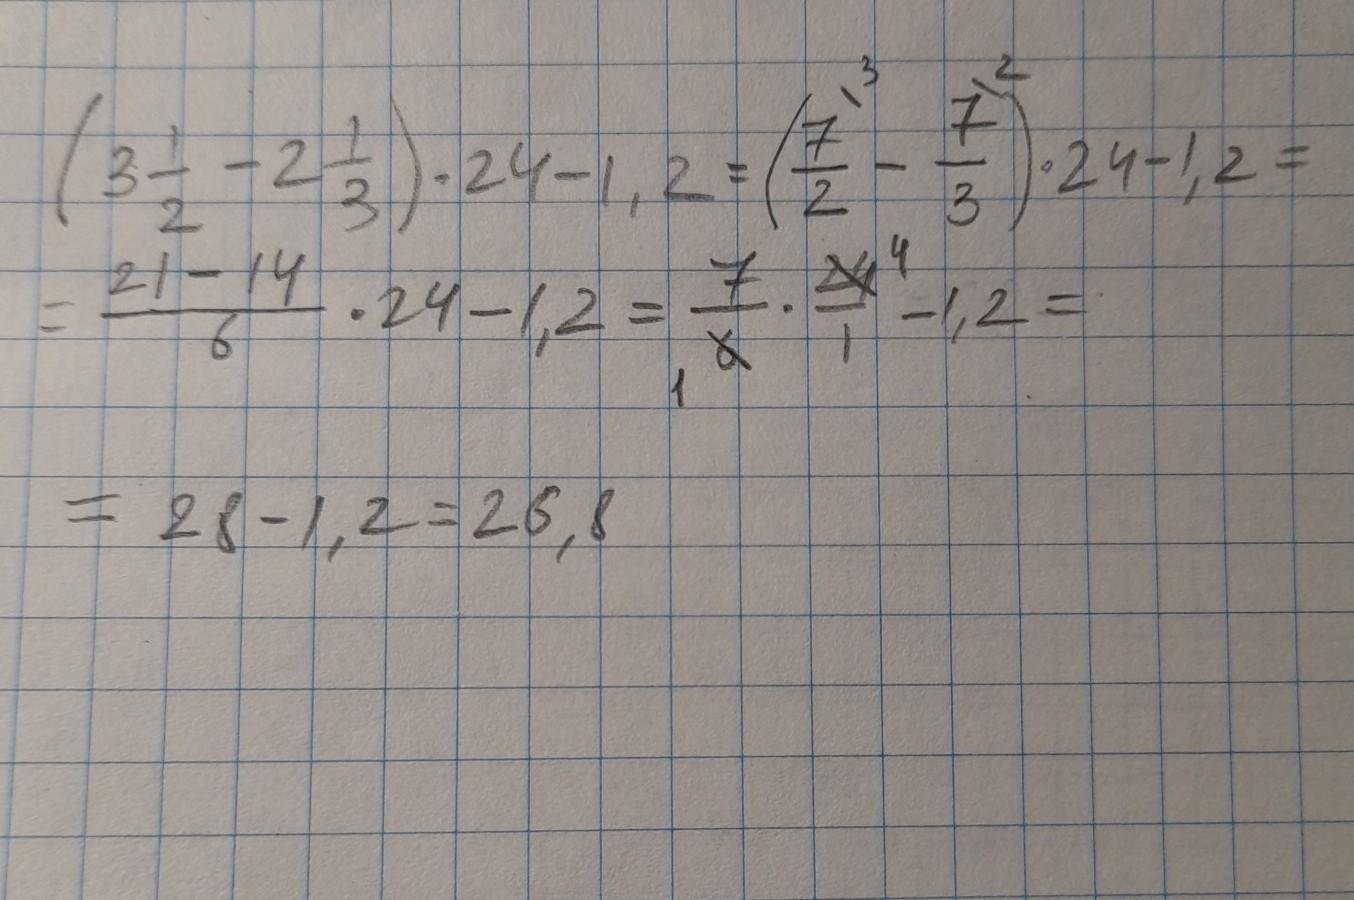 (3 1/2 - 2 1/3) · 24 - 1,2 = (7/2 \3 - 7/3 \2) · 24 - 1,2 =
= (21 - 14)/6 · 24 - 1,2 = 7/6 1 · 24/1 4 - 1,2 =
= 28 - 1,2 = 26,8